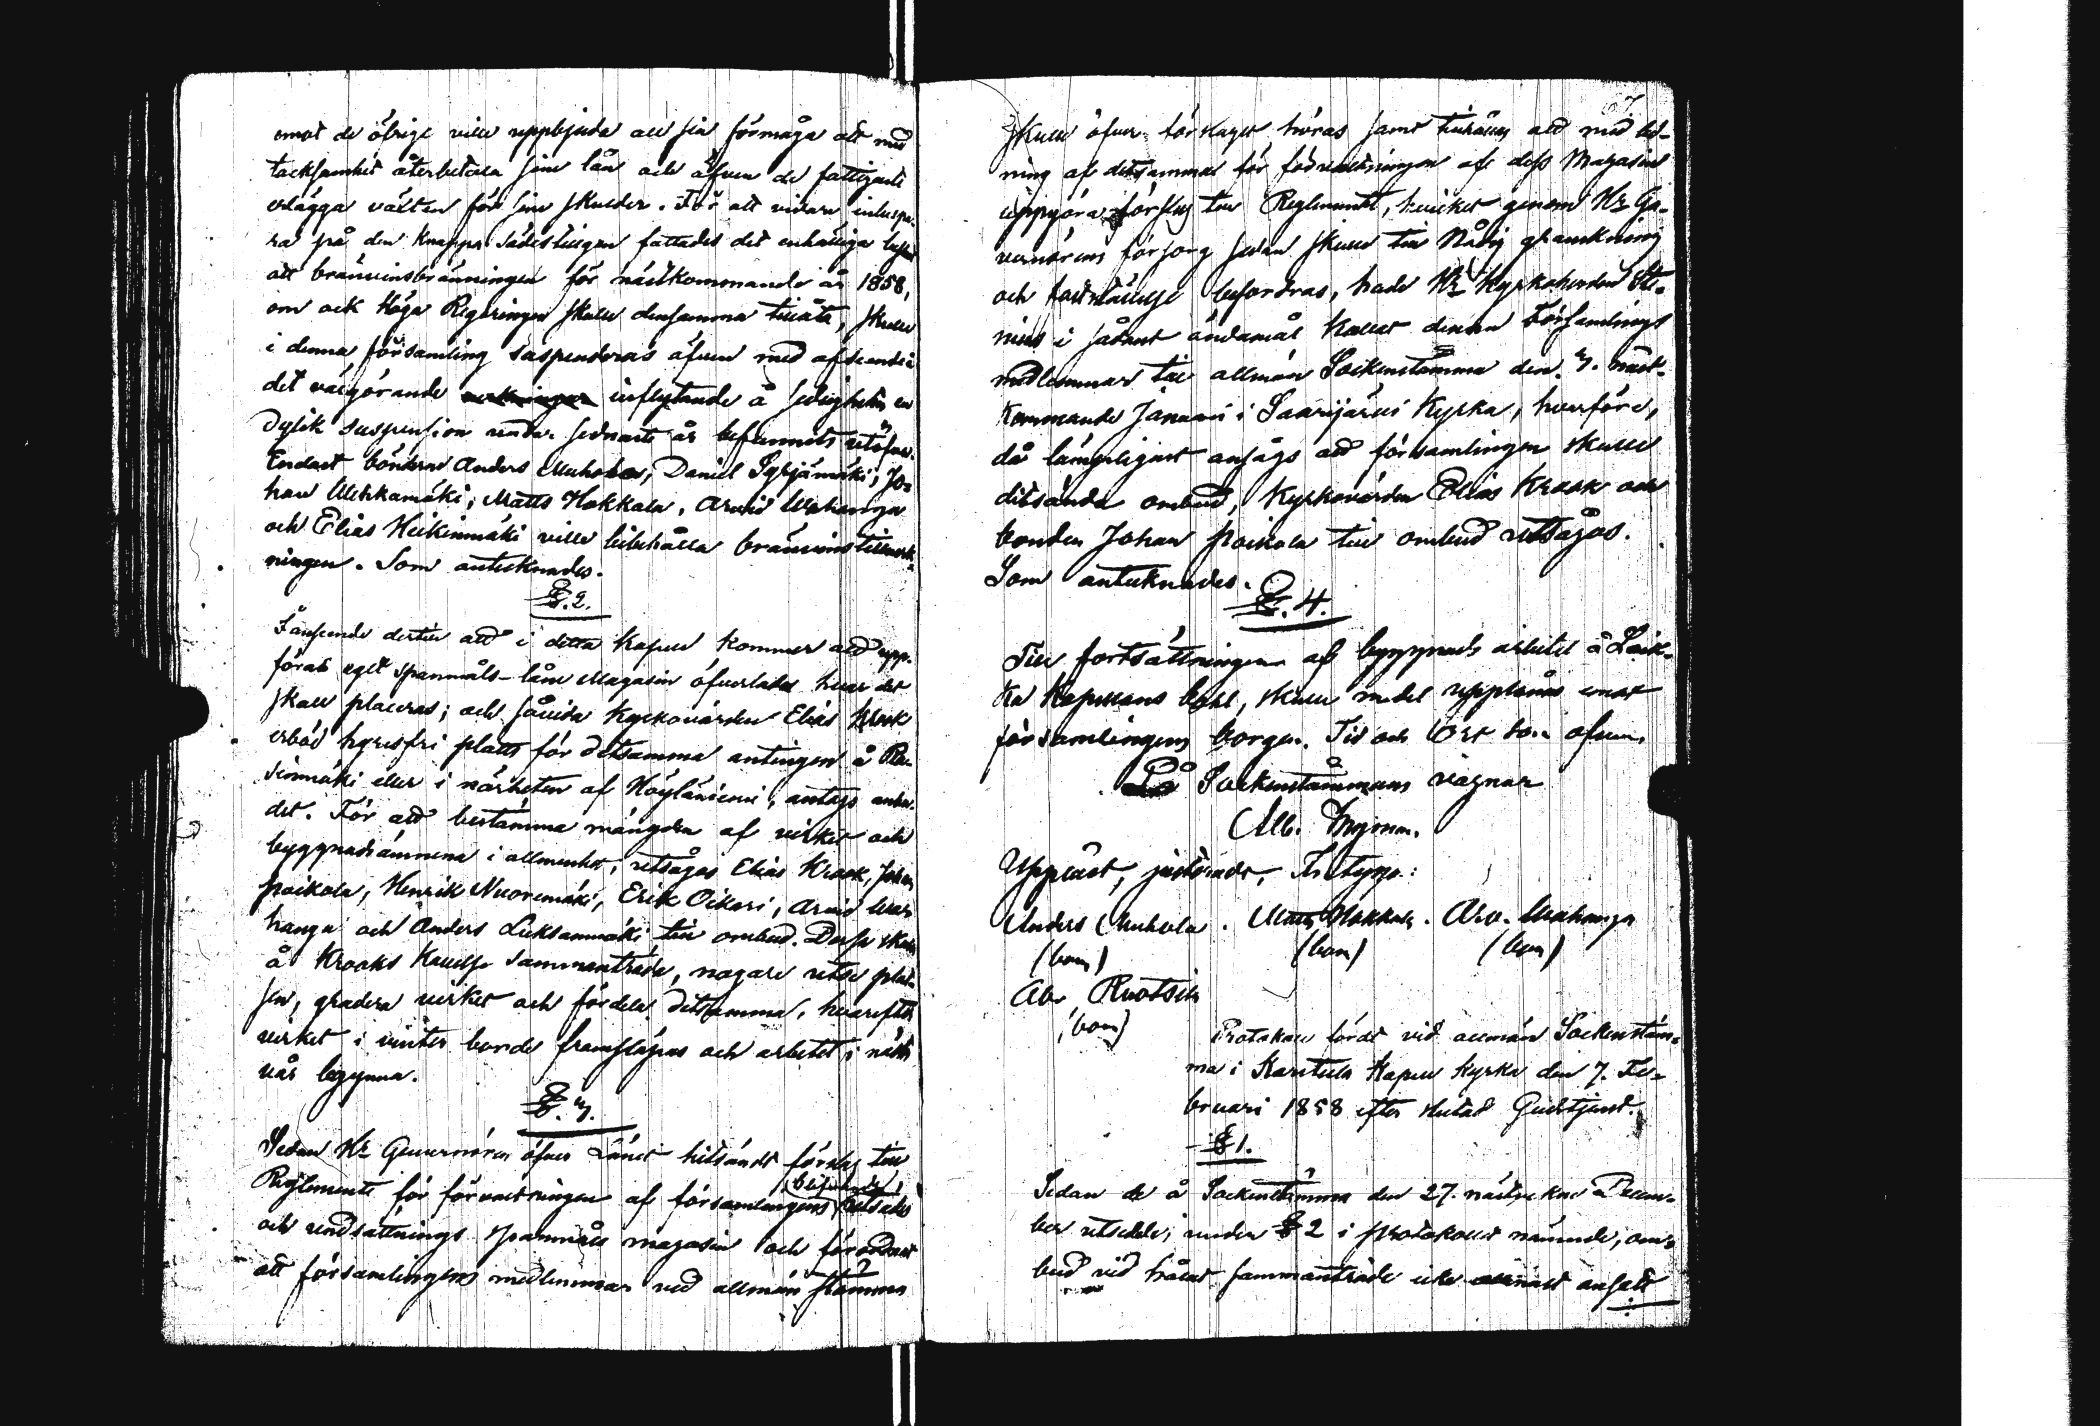 emot de öfrige ville uppbjuda all sin förmåga att med
tacksamhet återbetala sine lån och äfven de fattigaste
erlägga räntan för sine skulder. För att vidare inbespa-
ra på den knappa sädestillgången fattades det enhälliga beslut
att bränvinsbränningen för nästkommande år 1858,
om ock Höga Regeringen skulle densamma tillåta, skulle
i denna församling suspenderas äfven med afseende å
det välgörande inflytande å sedligheten en
dylik suspension under sednaste år befunnits utöfva.
Endast bönderne Anders Muhola, Daniel Syrjämäki, Jo-
han Uehkamäki, Matts Hokkala, Arvid Wahanga
och Elias Heikinmäki ville bibehålla bränvinstillverk-
ningen. Som antecknades.
§. 2.
I anseende dertill att i detta Kapell kommer att upp-
föras eget spanmåls-låne Magasin öfverlades hvar det
skall placeras; och såvida Kyrkovärden Elias Krook
erböd hyresfri platts för detsamma antingen å
eller i närheten af Höyläniemi, antogs anbu-
det. För att bestämma mängden af virket och
byggnadsämnena i allmenhet, utsågos Elias Krook, Johan
Poikola, Henrik Nuoremäki, Erik Oikari, Arvid Wa-
hanga och Anders Luksanmäki till ombud. Desse skulle
å Krooks kallelse sammanträda, nogare utse plat-
sen, gradera virket och fördela detsamma, hvarefter
virket i vinter borde framsläpas och arbetet i nästa
vår begynna.
§. 3.
Sedan Hr Guvernören öfver Länet hitsändt förslag till
Reglemente för förvaltningen af församlingens
och undsättnings spanmåls magasin och förordnat
att församlingens medlemmar vid allmän stämma
skulle öfver förslaget höras samt tillsägas att med led-
ning af detsamma för förvaltningen af dess Magasin
uppgöra förslag till Reglemente, hvilket genom Hr Gu-
vernörens försorg sedan skulle till Nådig granskning
och fastställelse befordras, hade Hr Kyrkoherden Ste-
nius i sådant ändamål kallat denna Församlings
medlemmar till allmän Sockenstämma den 3. näst-
kommande Januari i Saarijärvi Kyrka, hvarföre,
då lämpligast ansågs att församlingen skulle
ditsända ombud, Kyrkovärden Elias Krook och
bonden Johan Poikola till ombud utsågos.
Som antecknades.
§. 4.
Till fortsättningen af byggnads arbetet å Laik-
ka Kapellans bohl, skulle medel upplånas emot
församlingens borgen. Tid och Ort som ofvan.
På Sockenstämmans vägnar
Alb.
Uppläst, justeradt,
Anders Muhola. Matts Hokkala. Arv. Wahanga
(bom) (bom) (bom)
Abr. Ruotsila
(bom)
Protokoll fördt vid allmän Sockenstäm-
ma i Karstula Kapell Kyrka den 7. Fe-
bruari 1858 efter slutad Gudstjenst.
§ 1.
Sedan de å Sockenstämma den 27. nästvekne Decem-
ber utsedde, under § 2 i protokollet nämnde, om-
bud vid hållet sammanträde icke allenast ansett